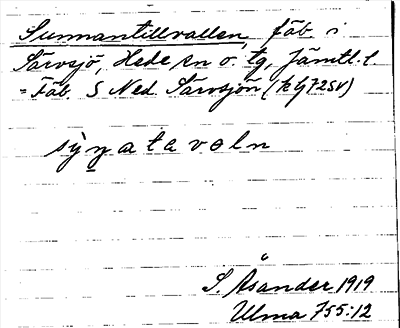 Sunnantillvallen, fäb. i
Särvsjö, Hede sn o. tg, Jämtl. l.
= Fäb. S Ned. Särvsjön (k bl 72 SV)
sỳn̲atavoln
S. Åsander 1919
Ulma 755:12